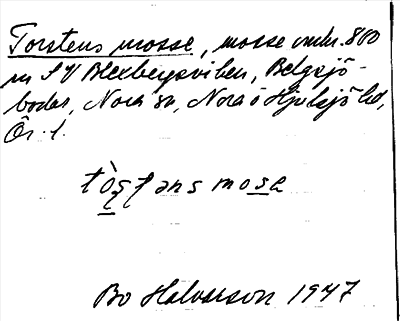 Torstens mosse, mosse omkr. 800
m SV Blexbergsviken, Belgsjö-
bodar, Nora sn, Nora o Hjulsjö hd,
Ör. l.
Bo Halvarson 1947